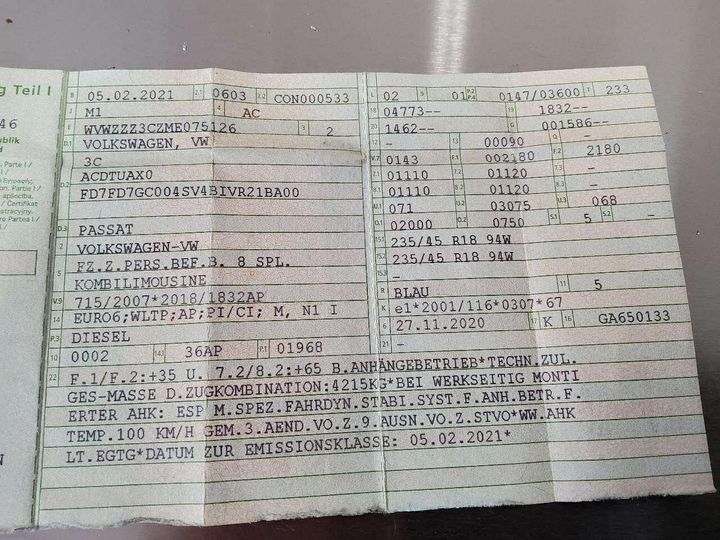 g Teil I
46
B 05.02.2021 2.1 0603 2.2 CON000533
J M1 4 AC
E WVWZZZ3CZME075126 3 2
D.1 VOLKSWAGEN, VW
3C
D.2 ACDTUAX0
FD7FD7GC004SV4BIVR21BA00
D.3 PASSAT
2 VOLKSWAGEN-VW
5 FZ.Z.PERS.BEF.B. 8 SPL.
KOMBILIMOUSINE
V.9 715/2007*2018/1832AP
14 EURO6;WLTP;AP;PI/CI; M, N1 I
P.3 DIESEL
10 0002 14.1 36AP P.1 01968
L 02 9 01 P.2 P.4 0147/03600 T 233
18 04773-- 19 1832--
20 1462-- G 001586--
12 - 13 00090 Q -
V.7 0143 F.1 002180 F.2 2180
7.1 01110 7.2 01120 7.3 -
8.1 01110 8.2 01120 8.3 -
U.1 071 U.2 03075 U.3 068
O.1 02000 O.2 0750 S.1 5 S.2 -
15.1 235/45 R18 94W
15.2 235/45 R18 94W
15.3 -
R BLAU 11 5
K e1*2001/116*0307*67
6 27.11.2020 17 K 16 GA650133
22 F.1/F.2:+35 U. 7.2/8.2:+65 B.ANHÄNGEBETRIEB*TECHN.ZUL.
GES-MASSE D.ZUGKOMBINATION:4215KG*BEI WERKSEITIG MONTI
ERTER AHK: ESP M.SPEZ.FAHRDYN.STABI.SYST.F.ANH.BETR.F.
TEMP.100 KM/H GEM.3.AEND.VO.Z.9.AUSN.VO.Z.STVO*WW.AHK
LT.EGTG*DATUM ZUR EMISSIONSKLASSE: 05.02.2021*